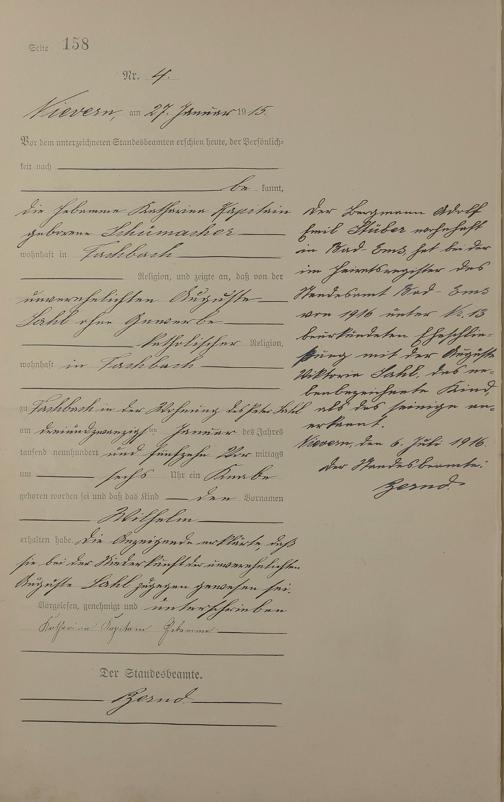 Seite 158
Nr. 4.
Nievern, am 27. Januar 1915.
Vor dem unterzeichneten Standesbeamten erschien heute, der Persönlich-
keit nach
be kannt,
die Hebamme Katharina Kapitain
geborene Schumacher
wohnhaft in Fachbach
Religion, und zeigte an, daß von der
unverehelichten Auguste
Sahl ohne Gewerbe
katholischer Religion,
wohnhaft in Fachbach
zu Fachbach in der Wohnung des Peter
am dreiundzwanzigsten Januar des Jahres
tausend neunhundert und fünfzehn Vor mittags
um sechs Uhr ein Knabe
geboren worden sei und daß das Kind den Vornamen
Wilhelm
erhalten habe. Die Anzeigende erklärte, daß
sie bei der Niederkunft der unverehelichten
Auguste Sahl zugegen gewesen sei.
Vorgelesen, genehmigt und unterschrieben
Katharina Kapitain Hebamme
Der Standesbeamte.
Bernd
Der Bergmann Adolf
Emil Stüber wohnhaft
in Bad Ems hat bei der
im Heiratsregister des
Standesamt Bad-Ems
von 1916 unter No. 13
beurkundeten Eheschlie-
ßung mit der Auguste
Viktoria Sahl, das ne-
benbezeichnete Kind,
als das seinige an-
erkannt.
Nievern, den 6. Juli 1916.
Der Standesbeamte:
Bernd